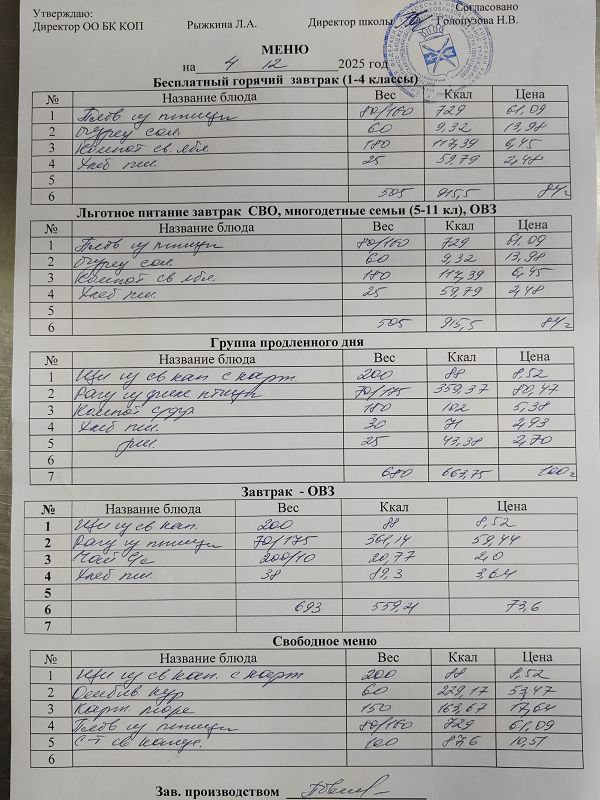 Утверждаю: Согласовано
Директор ОО БК КОП Рыжкина Л.А. Директор школы Голопузова Н.В.
МЕНЮ
на 4 12 2025 год
Бесплатный горячий завтрак (1-4 классы)
№ Название блюда Вес Ккал Цена
1 Плов из птицы 80/160 729 61,09
2 Огурец сол. 60 9,32 13,98
3 Компот св. ябл 180 117,39 6,45
4 Хлеб пш. 25 59,79 2,48
5
6 505 915,5 84
Льготное питание завтрак СВО, многодетные семьи (5-11 кл), ОВЗ
№ Название блюда Вес Ккал Цена
1 Плов из птицы 80/160 729 61,09
2 Огурец сол. 60 9,32 13,98
3 Компот св ябл. 180 117,39 6,45
4 Хлеб пш. 25 59,79 2,48
5
6 505 915,5 84
Группа продленного дня
№ Название блюда Вес Ккал Цена
1 Щи из св кап с карт. 200 88 8,52
2 Рагу из филе птицы 70/175 359,37 80,47
3 Компот с/фр 180 102 5,38
4 Хлеб пш. 30 71 2,93
5 рж. 25 43,38 2,70
6
7 680 663,75 100
Завтрак - ОВЗ
№ Название блюда Вес Ккал Цена
1 Щи из св кап. 200 88 8,52
2 Рагу из птицы 70/175 361,14 59,44
3 Чай с/с 200/10 20,77 2,0
4 Хлеб пш. 38 89,3 3,64
5
6 693 559,21 73,6
7
Свободное меню
№ Название блюда Вес Ккал Цена
1 Щи из св кап. с карт 200 88 8,52
2 кур 60 229,17 53,47
3 Карт. пюре 150 163,67 17,64
4 Плов из птицы 80/160 729 61,09
5 С-т св капус. 100 87,6 10,51
6
Зав. производством